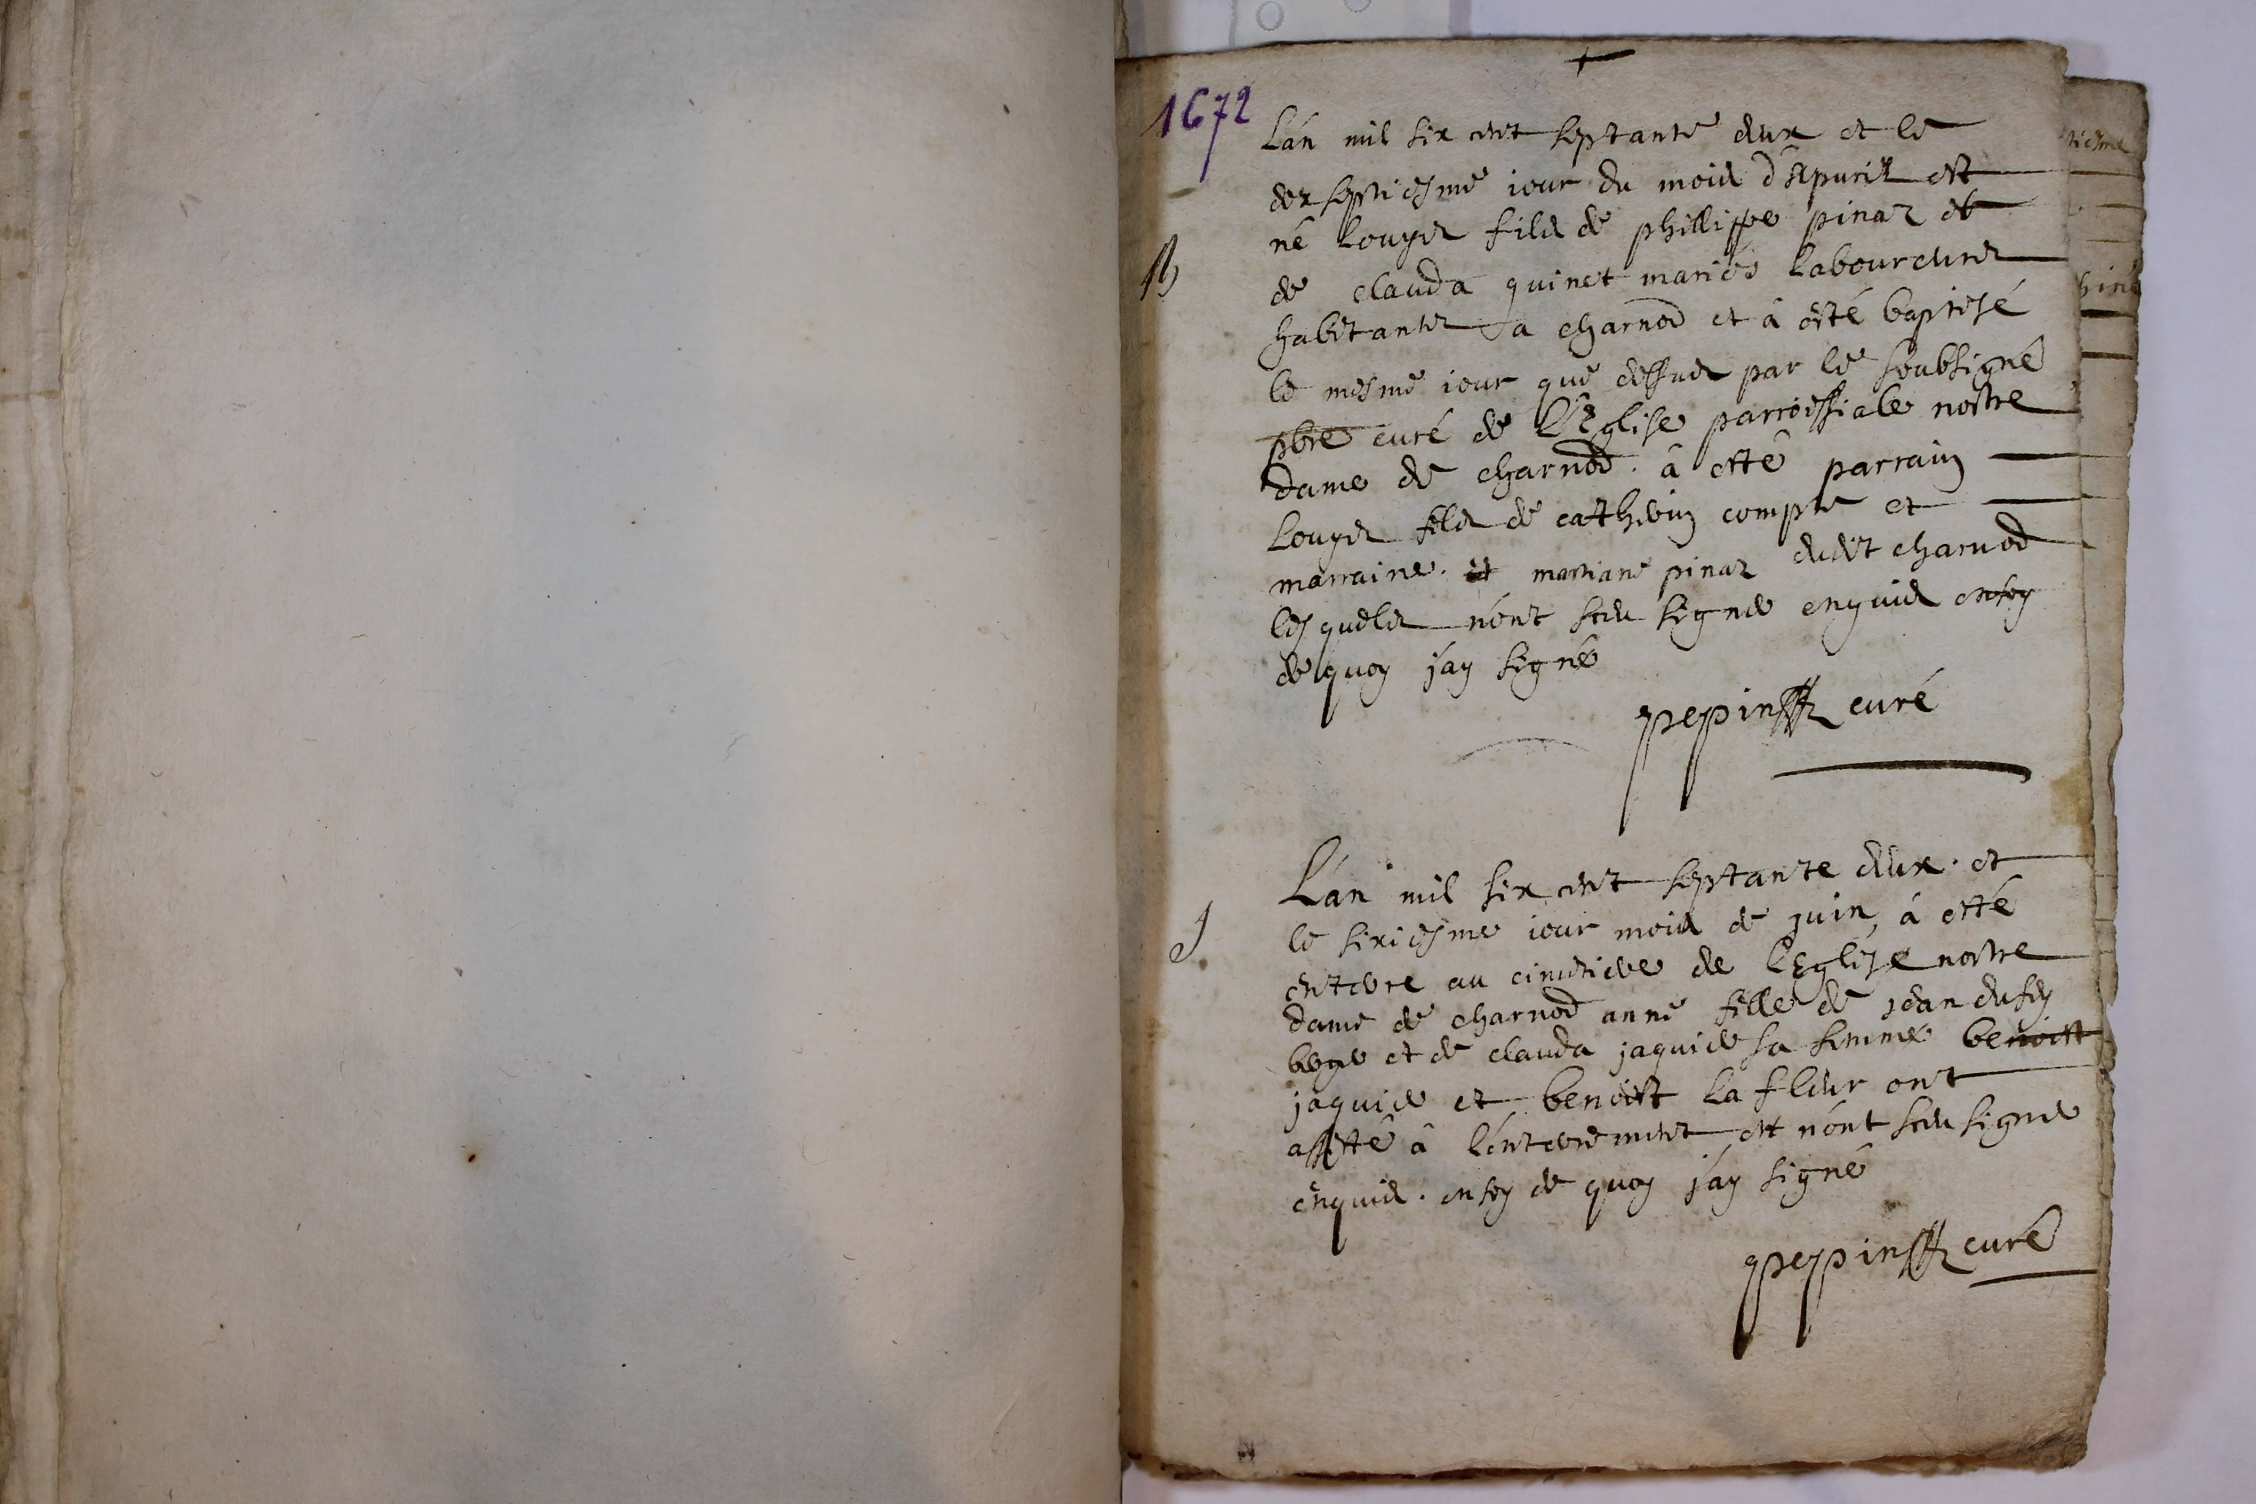 1672
L'an mil six cent septante deux et le
dex septiesme iour du mois d'Apuril est
né Louys fils de phillippe pinar et
de clauda quinet mariés laboureurs
habitants a charnod et à esté baptisé
B
le mesme iour que dessus par le soubsigné
pbre curé de l'Eglise parroissiale nostre
dame de charnod. à esté parrain
Louys fils de catherin compte et
marraine. et martiane pinar dudit charnod
lesquels n'ont sceu signer enquis en foy
de quoy j'ay signé
pepin curé
L'an mil six cent septante deux. et
le sixiesme iour mois de juin, à esté
S
enterre au cimetiere de l'Eglise nostre
dame de charnod anne fille de jean
et de clauda jaquier sa femme benoist
jaquier et benoist La fleur ont
assisté à l'enterrement et n'ont sceu signer
enquis. en foy de quoy j'ay signé
pepin curé